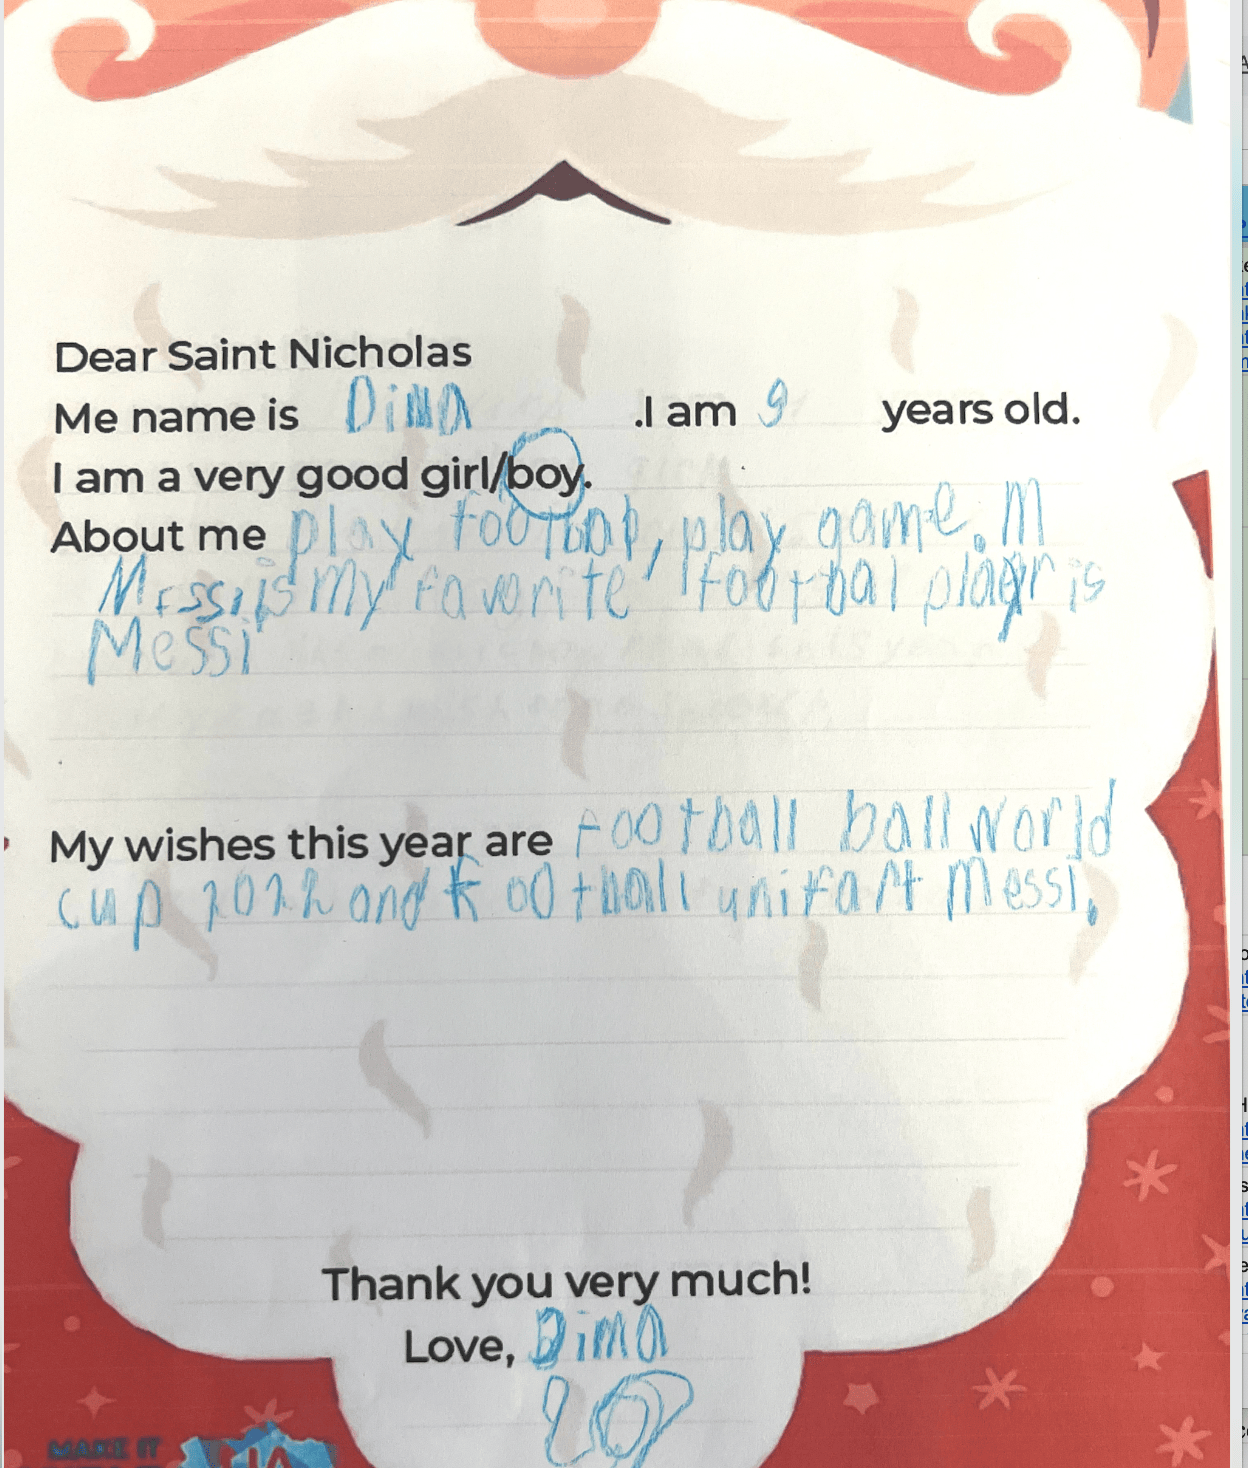 Dear Saint Nicholas
Me name is Dima .I am 9 years old.
I am a very good girl/boy.
About me play football, play game. M
Messi is my favorite footbal playr is
Messi
My wishes this year are Football ball world
cup 2022 and football unifart Messi.
Thank you very much!
Love, Dima
MAKE IT